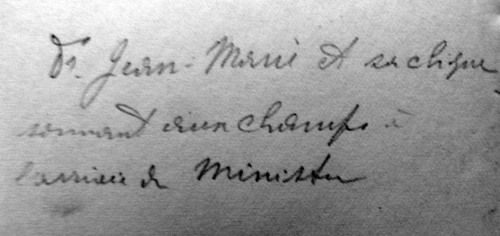 Fr. Jean-Marie et sa clique
sonnant aux champs à
l'arrivée du Ministre